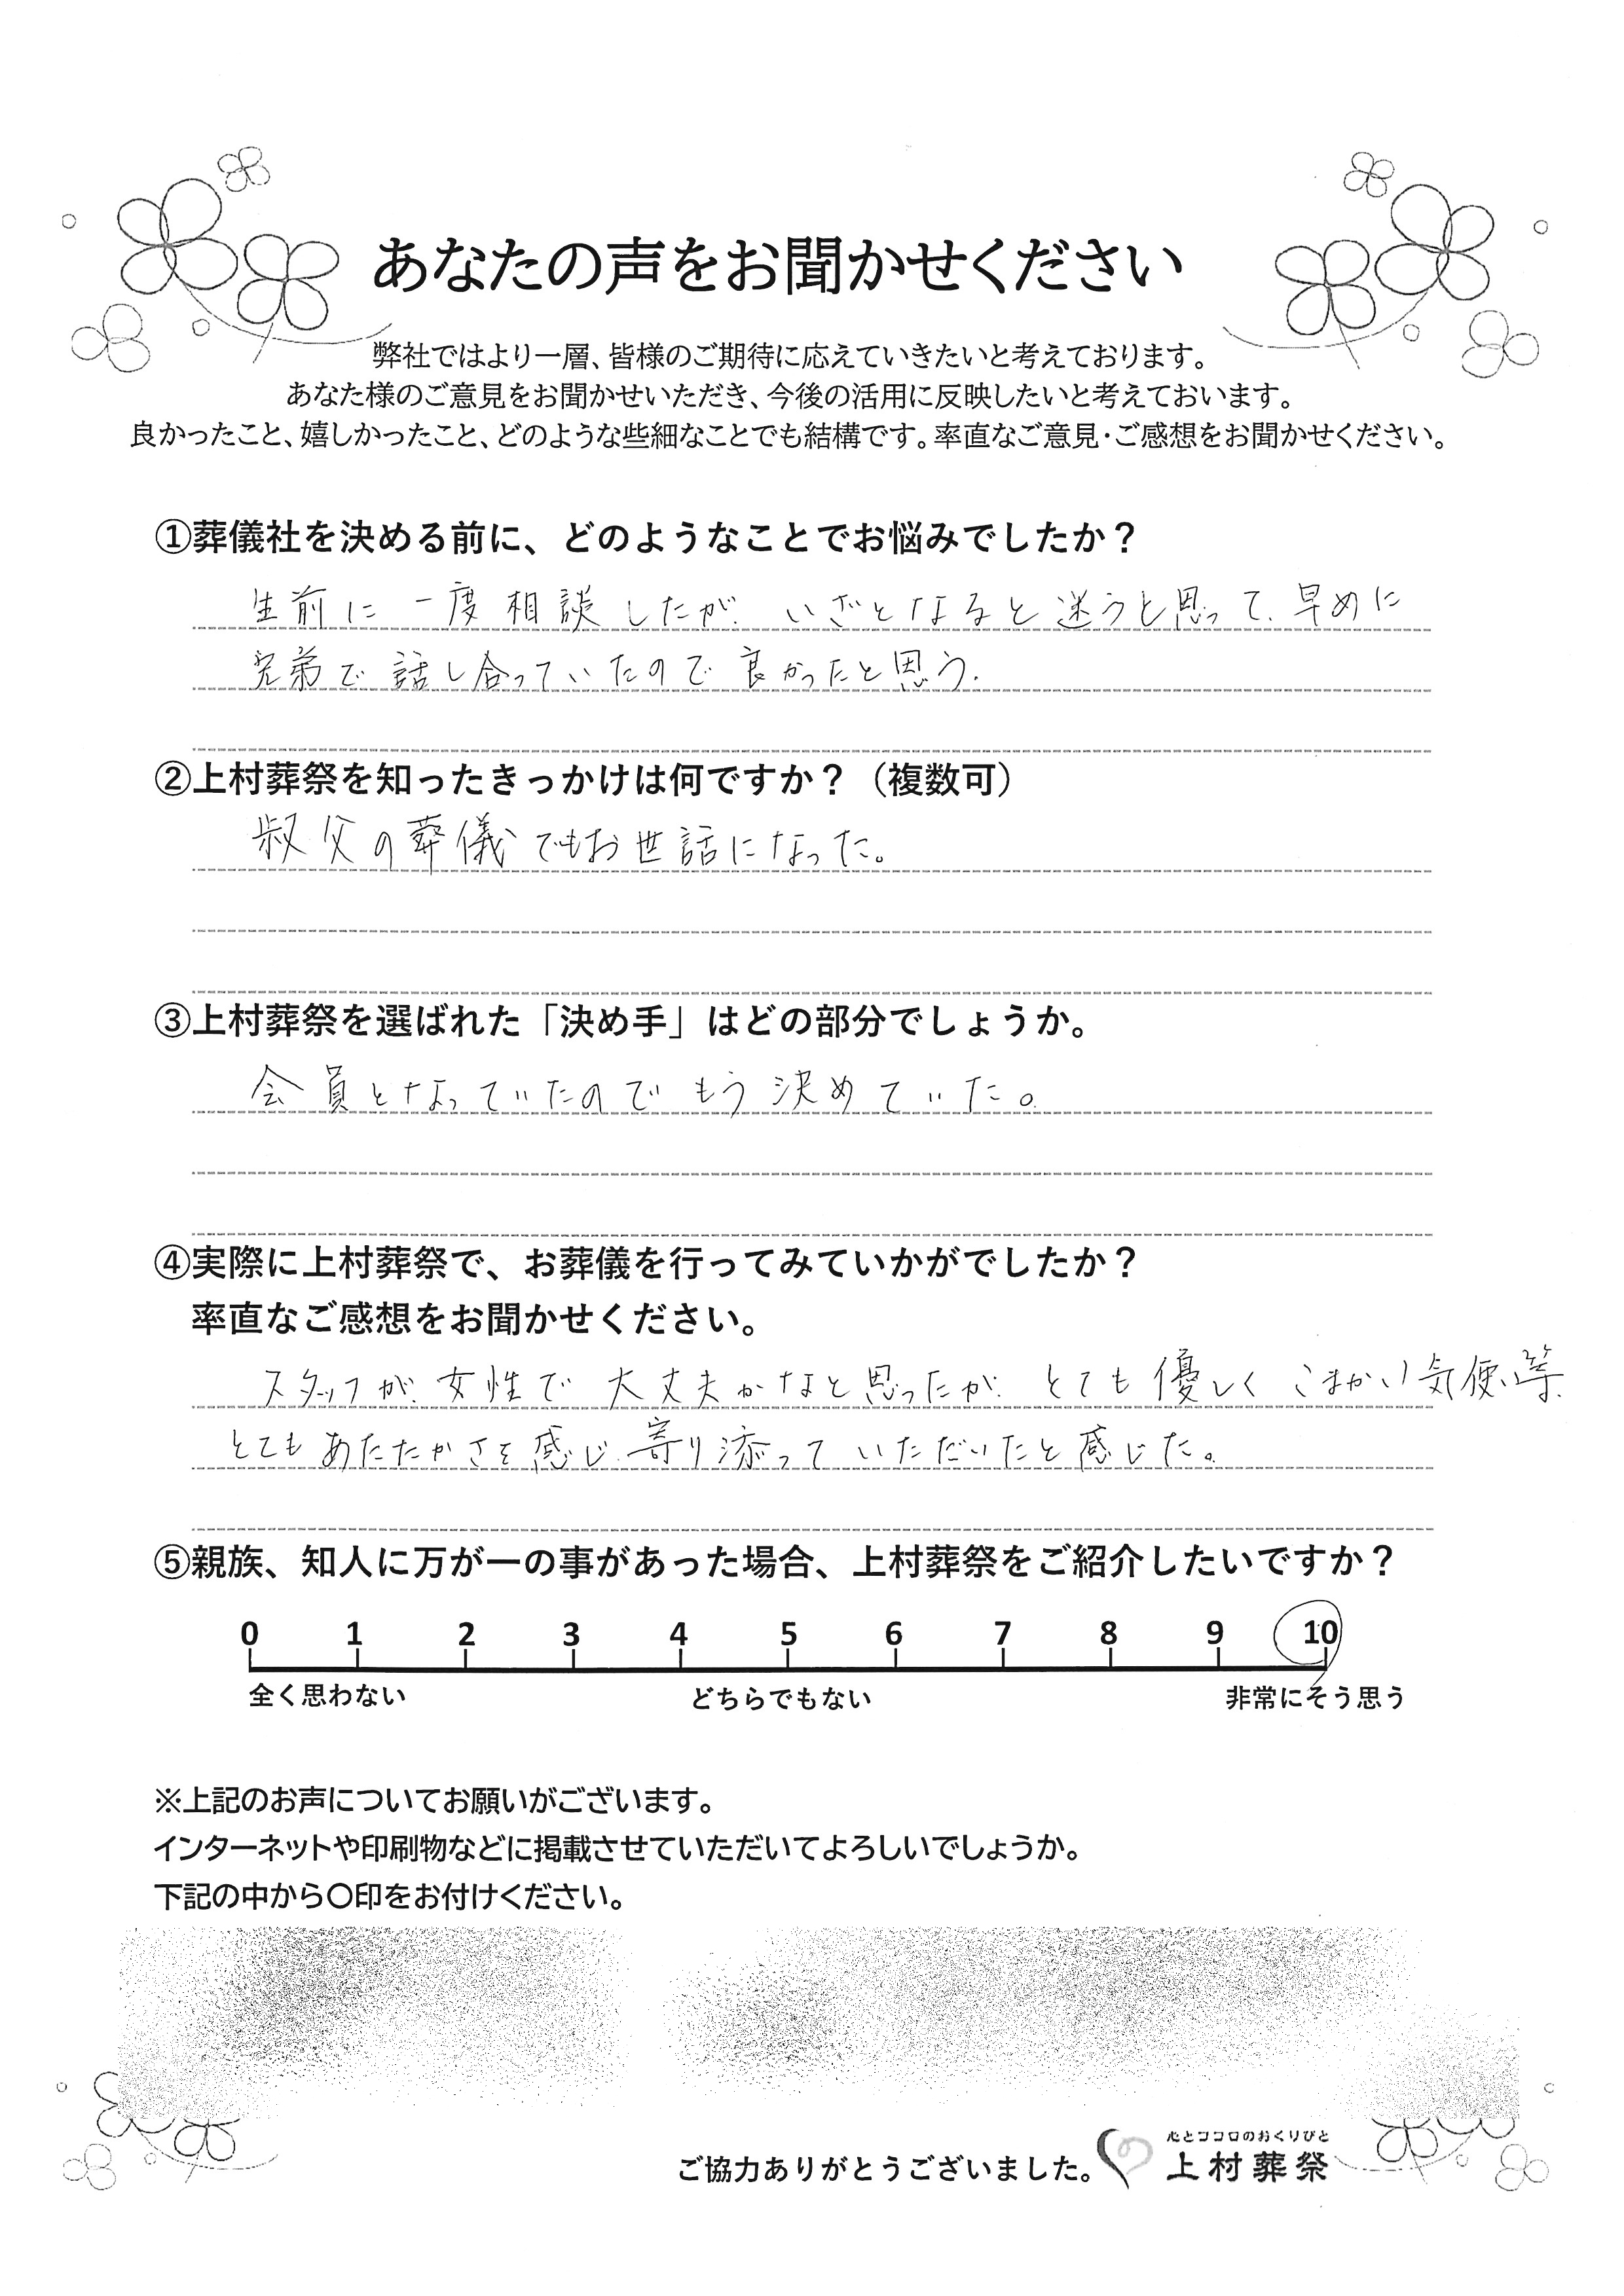 あなたの声をお聞かせください
弊社ではより一層、皆様のご期待に応えていきたいと考えております。
あなた様のご意見をお聞かせいただき、今後の活用に反映したいと考えておいます。
良かったこと、嬉しかったこと、どのような些細なことでも結構です。率直なご意見・ご感想をお聞かせください。
①葬儀社を決める前に、どのようなことでお悩みでしたか？
生前に一度相談したが、いざとなると迷うと思って、早めに
兄弟で話し合っていたので良かったと思う。
②上村葬祭を知ったきっかけは何ですか？（複数可）
叔父の葬儀でもお世話になった。
③上村葬祭を選ばれた「決め手」はどの部分でしょうか。
会員となっていたのでもう決めていた。
④実際に上村葬祭で、お葬儀を行ってみていかがでしたか？
率直なご感想をお聞かせください。
スタッフが、女性で大丈夫かなと思ったが、とても優しくこまかい気使い等、
とてもあたたかさを感じ、寄り添っていただいたと感じた。
⑤親族、知人に万が一の事があった場合、上村葬祭をご紹介したいですか？
0 1 2 3 4 5 6 7 8 9 10
全く思わない どちらでもない 非常にそう思う
※上記のお声についてお願いがございます。
インターネットや印刷物などに掲載させていただいてよろしいでしょうか。
下記の中から〇印をお付けください。
心とココロのおくりびと
ご協力ありがとうございました。 上村葬祭